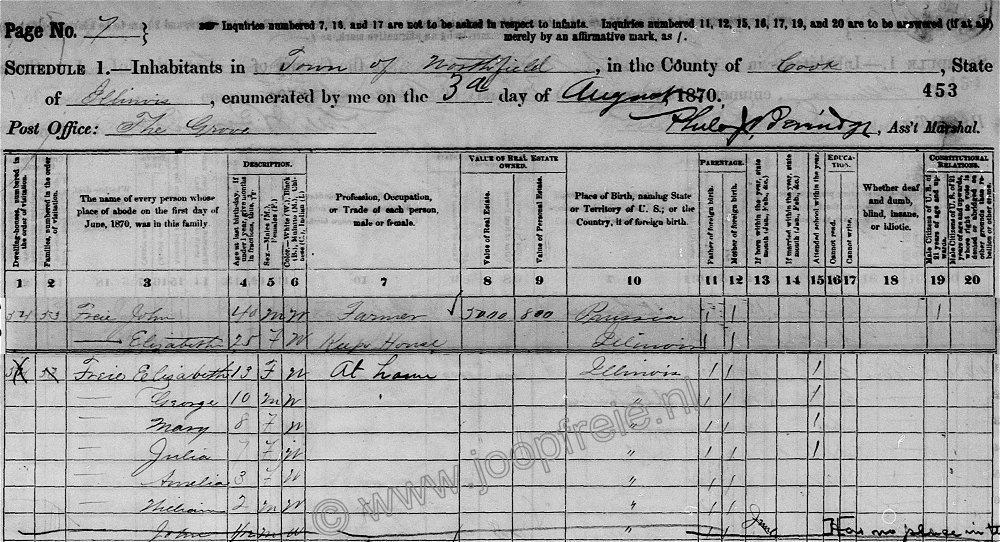 Page No. 7 } Inquiries numbered 7, 16, and 17 are not to be asked in respect to infants. Inquiries numbered 11, 12, 15, 16, 17, 19, and 20 are to be answered (if at all)
merely by an affirmative mark, as /.
SCHEDULE 1.—Inhabitants in Town of Northfield, in the County of Cook, State
of Illinois, enumerated by me on the 3d day of August, 1870. 453
Post Office: The Grove Philo Ass't Marshal.
DESCRIPTION. VALUE OF REAL ESTATE OWNED. PARENTAGE. EDUCATION. CONSTITUTIONAL RELATIONS.
Dwelling-houses, numbered in the order of visitation.
Families, numbered in the order of visitation.
The name of every person whose place of abode on the first day of June, 1870, was in this family.
Age at last birth-day. If under 1 year, give months in fractions, thus,
Sex.—Males (M.), Females (F.)
Color.—White (W.), Black (B.), Mulatto (M.),
Profession, Occupation, or Trade of each person, male or female.
Value of Real Estate.
Value of Personal Estate.
Place of Birth, naming State or Territory of U. S.; or the Country, if of foreign birth.
Father of foreign birth.
Mother of foreign birth.
If born within the year, state month (Jan., Feb., &c.)
If married within the year, state month (Jan., Feb., &c.)
Attended school within the year.
Cannot read.
Cannot write.
Whether deaf and dumb, blind, insane, or idiotic.
Male Citizens of U. S. of 21 years of age and upwards.
1 2 3 4 5 6 7 8 9 10 11 12 13 14 15 16 17 18 19 20
54 53 Freie John 40 M W Farmer 5000 800 Prussia / / /
— Elizabeth 25 F W Keeps House Illinois / /
Freie Elizabeth 13 F W At home Illinois / / /
— George 10 M W " / / /
— Mary 8 F W " / / /
— Julia 7 F W " / / /
— Amelia 3 F W " / /
— William 2 M W " / /
— John M W " / / Has no place in
© www.joopfreie.nl